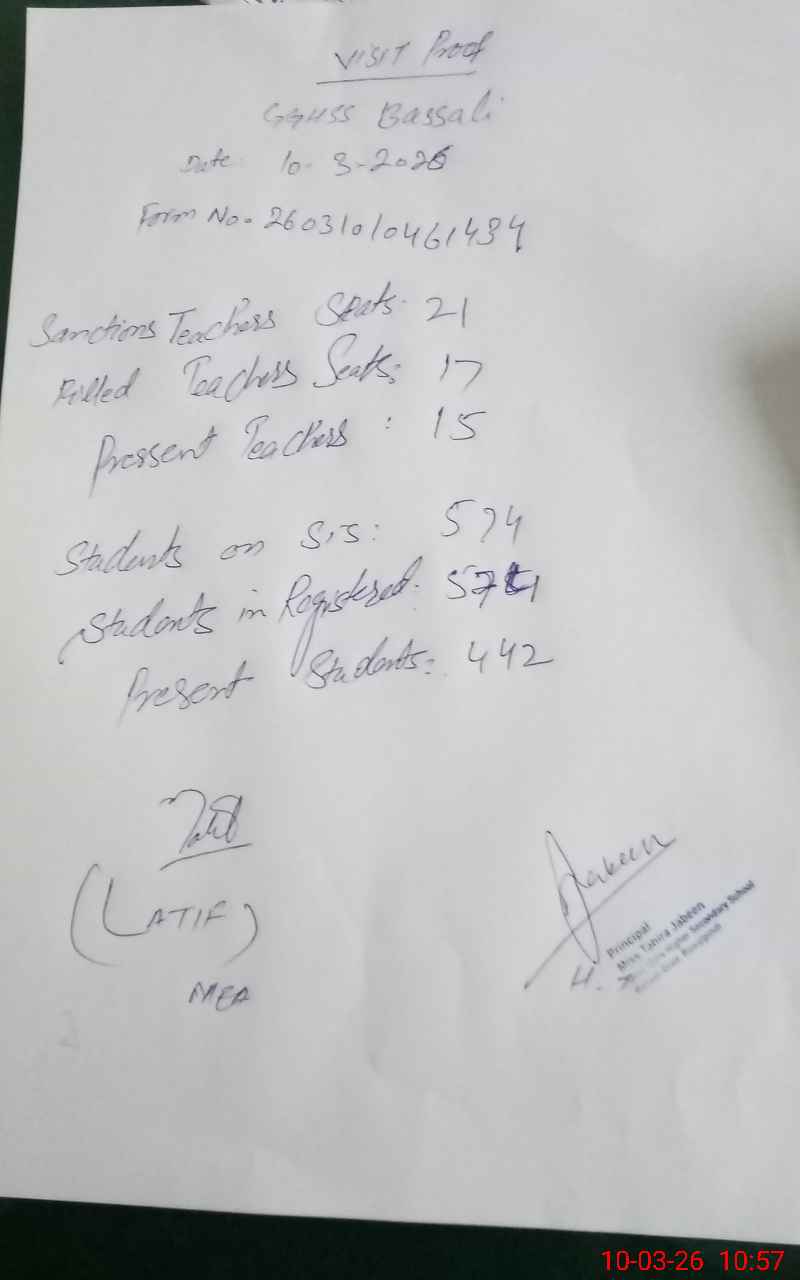 VISIT Proof
GGHSS Bassali
Date 10-3-2026
Form No. 26031010461434
Sanctions Teachers Seats. 21
Filled Teachers Seats: 17
Pressent Teachers : 15
Students on SIS: 574
Students in Registered.
Present Students: 442
(LATIF)
MEA
Jabeen
Principal
Mrss Tahira Jabeen
Higher Secondary School
10-03-26 10:57